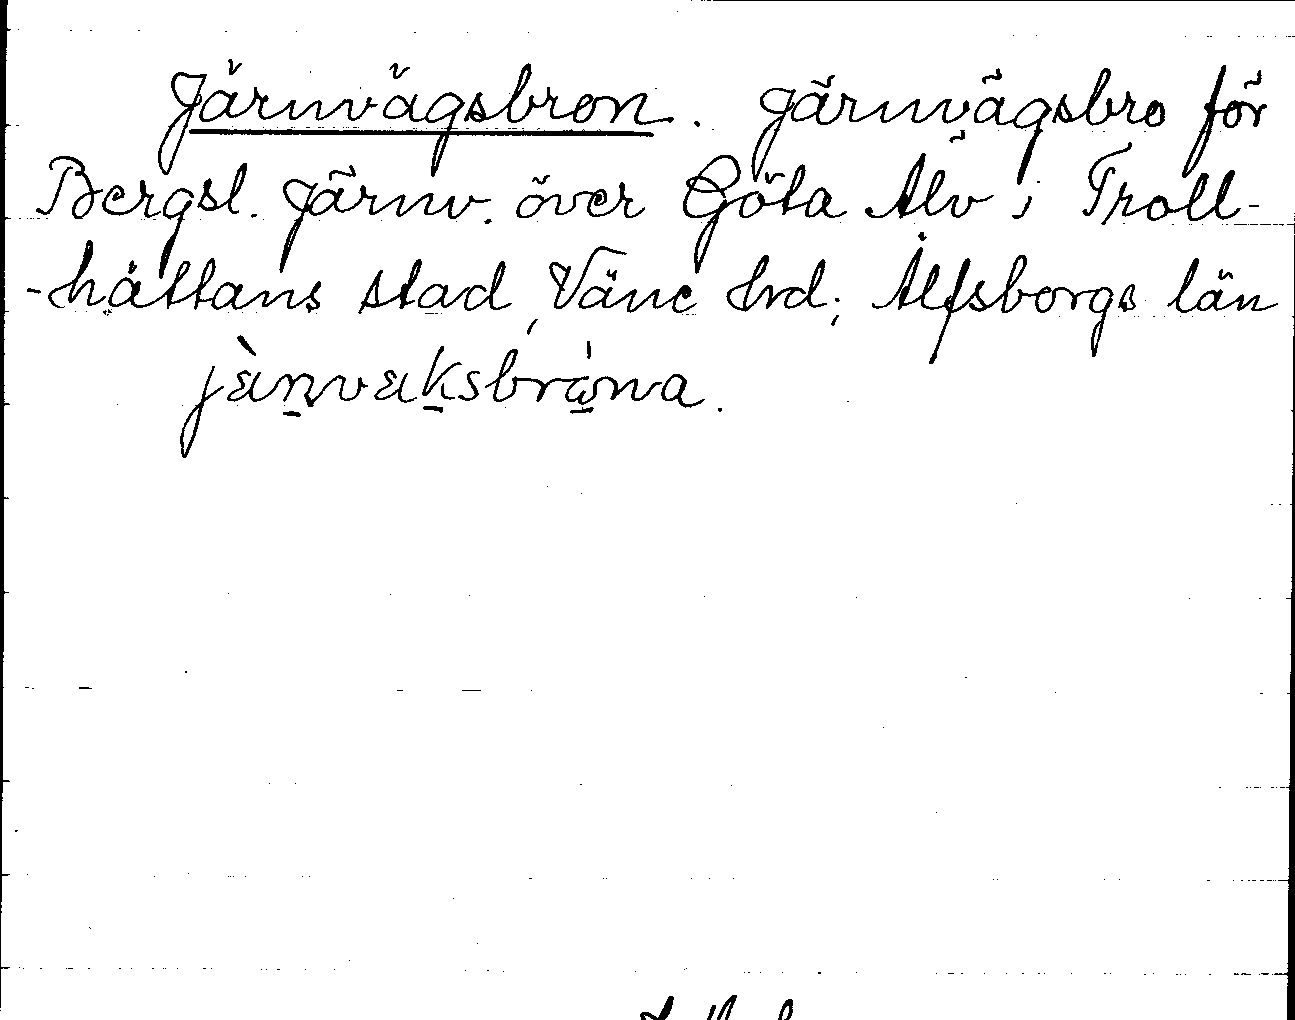 Järnvägsbron. Järnvägsbro för
Bergsl. Järnv. över Göta Älv i Troll-
-hättans stad, Väne hrd; Älfsborgs län
jὰn̲vak̲sbrω̲̇na.